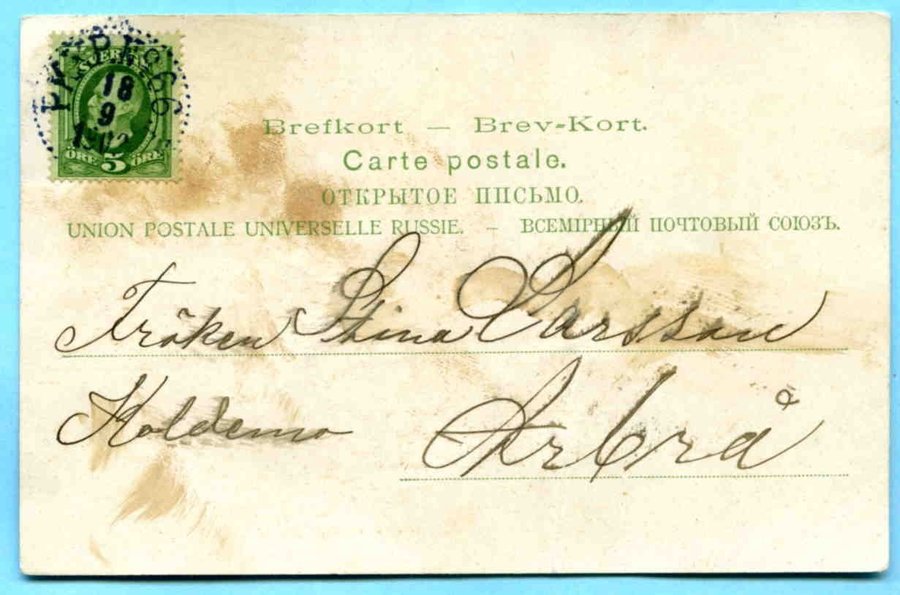 SVERIGE
18
9
1902
ÖRE 5 ÖRE
Brefkort — Brev-Kort.
Carte postale.
ОТКРЫТОЕ ПИСЬМО.
UNION POSTALE UNIVERSELLE RUSSIE. – ВСЕМІРНЫЙ ПОЧТОВЫЙ СОЮЗЪ.
Fröken Stina Larsson
Koldemo
Arbrå